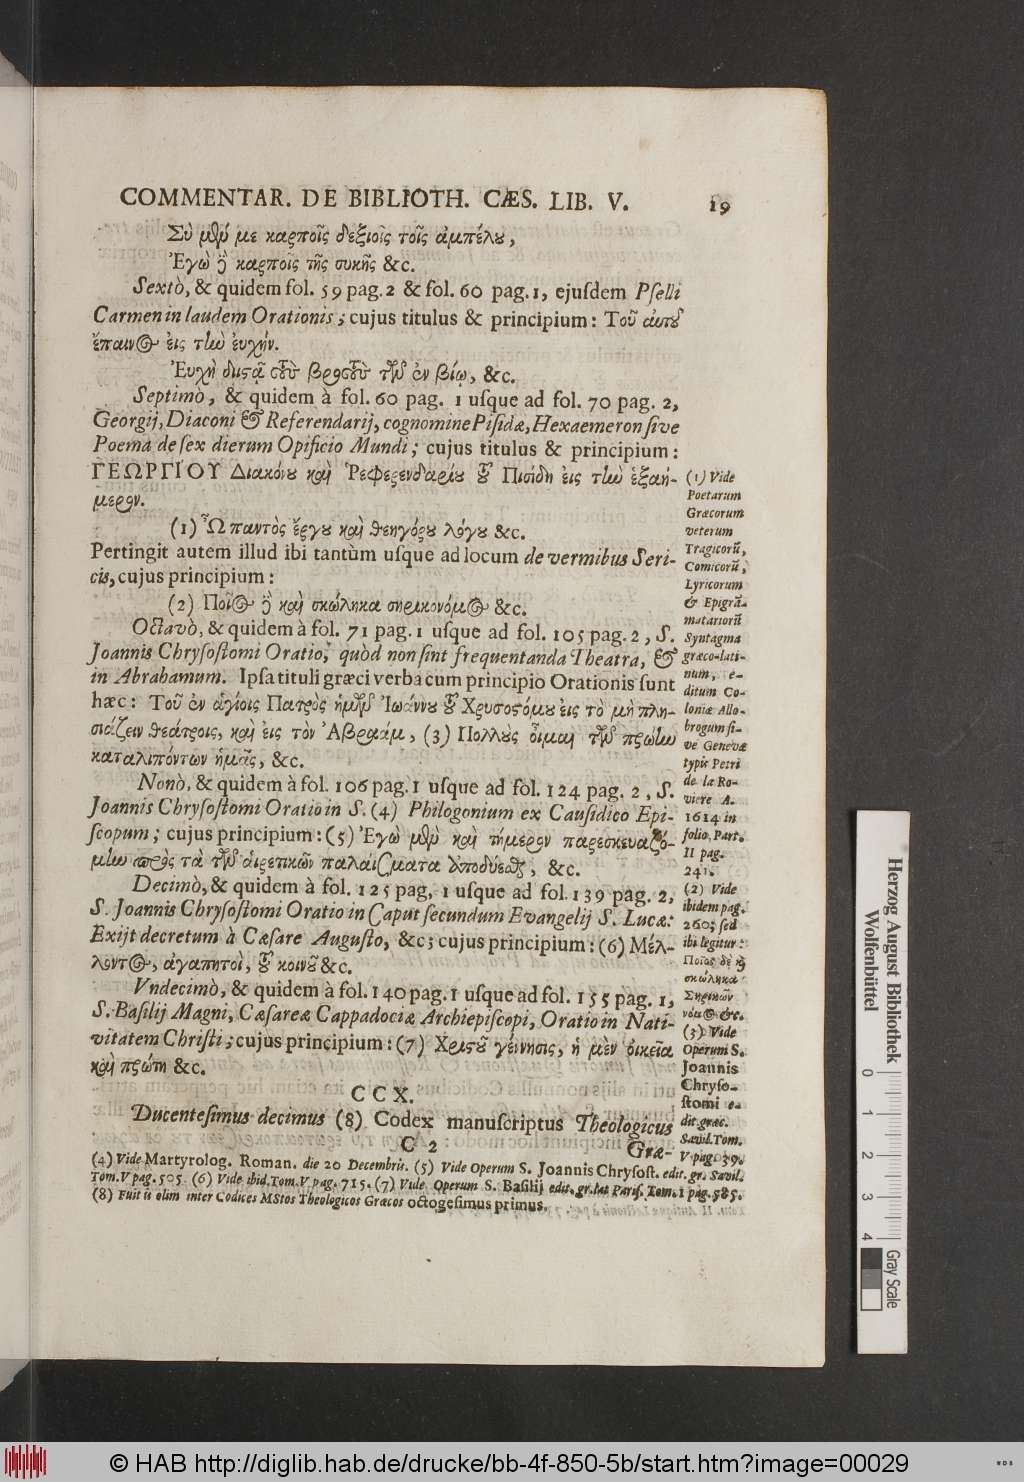 COMMENTAR. DE BIBLIOTH. CÆS. LIB. V. 19
Σὺ μὲν με καρποῖς δεξιοῖς τοῖς ἀμπέλου,
Ἐγὼ δὲ καρποῖς τῆς συκῆς &c.
Sextò, & quidem fol. 59 pag. 2 & fol. 60 pag. 1, ejuſdem Pſelli
Carmen in laudem Orationis; cujus titulus & principium: Τοῦ αὐτοῦ
ἔπαινος εἰς τὴν εὐχήν.
Ἐυχὴ βροτῶν ἐν βίῳ, &c.
Septimò, & quidem à fol. 60 pag. 1 uſque ad fol. 70 pag. 2,
Georgij, Diaconi & Referendarij, cognomine Piſidæ, Hexaemeron ſive
Poema de ſex dierum Opificio Mundi; cujus titulus & principium:
ΓΕΩΡΓΙΟΥ Διακόνου καὶ Ῥεφερενδαρίου τοῦ Πισίδη εἰς τὴν ἑξαή-
μερον.
(1) Ὦ παντὸς ἔργου καὶ θεηγόρου λόγου &c.
Pertingit autem illud ibi tantùm uſque ad locum de vermibus Seri-
cis, cujus principium:
(2) Ποῖος δὲ καὶ σκώληκα σηρικονόμος &c.
Octavò, & quidem à fol. 71 pag. 1 uſque ad fol. 105 pag. 2, S.
Joannis Chryſoſtomi Oratio, quòd non ſint frequentanda Theatra, &
in Abrahamum. Ipſa tituli græci verba cum principio Orationis ſunt
hæc: Τοῦ ἐν ἁγίοις Πατρὸς ἡμῶν Ἰωάννου τοῦ Χρυσοστόμου εἰς τὸ μὴ πλη-
σιάζειν θεάτροις, καὶ εἰς τὸν Ἀβραάμ, (3) Πολλοὺς οἶμαι τῶν πρώην
καταλιπόντων ἡμᾶς, &c.
Nonò, & quidem à fol. 106 pag. 1 uſque ad fol. 124 pag. 2, S.
Joannis Chryſoſtomi Oratio in S. (4) Philogonium ex Cauſidico Epi-
ſcopum; cujus principium: (5) Ἐγὼ μὲν καὶ τήμερον παρεσκευαζό-
μην πρὸς τὰ τῶν αἱρετικῶν παλαίσματα ἀποδύεσθαι, &c.
Decimò, & quidem à fol. 125 pag. 1 uſque ad fol. 139 pag. 2,
S. Joannis Chryſoſtomi Oratio in Caput ſecundum Evangelij S. Lucæ:
Exijt decretum à Cæſare Auguſto, &c; cujus principium: (6) Μέλ-
λοντος, ἀγαπητοὶ, τοῦ κοινοῦ &c.
Vndecimò, & quidem à fol. 140 pag. 1 uſque ad fol. 155 pag. 1,
S. Baſilij Magni, Cæſareæ Cappadociæ Archiepiſcopi, Oratio in Nati-
vitatem Chriſti; cujus principium: (7) Χριστοῦ γέννησις, ἡ μὲν οἰκεῖα
καὶ πρώτη &c.
CCX.
Ducenteſimus decimus (8) Codex manuſcriptus Theologicus
C 2 Græ-
(1) Vide
Poetarum
Græcorum
veterum
Tragicorũ,
Comicorũ,
Lyricorum
& Epigrã-
matariorũ
Syntagma
græco-lati-
num, e-
ditum Co-
loniæ Allo-
brogum ſi-
ve Genevæ
typis Petri
de la Ro-
viere A.
1614 in
folio. Part.
II pag.
241.
(2) Vide
ibidem pag.
260; ſed
ibi legitur:
Ποῖος δὲ καὶ
σκώληκα
Σηρικῶν
νόμος &c.
(3) Vide
Operum S.
Joannis
Chryſo-
ſtomi e-
dit. græc.
Savil. Tom.
V pag. 039.
(4) Vide Martyrolog. Roman. die 20 Decembris. (5) Vide Operum S. Joannis Chryſoſt. edit. gr. Savil.
Tom. V pag. 505. (6) Vide ibid. Tom. V pag. 715. (7) Vide Operum S. Baſilij edit. gr. lat Pariſ. Tom. 1 pag. 585.
(8) Fuit is olim inter Codices MStos Theologicos Græcos octogeſimus primus.
Herzog August Bibliothek
Wolfenbüttel
0 1 2 3 4
Gray Scale
© HAB http://diglib.hab.de/drucke/bb-4f-850-5b/start.htm?image=00029